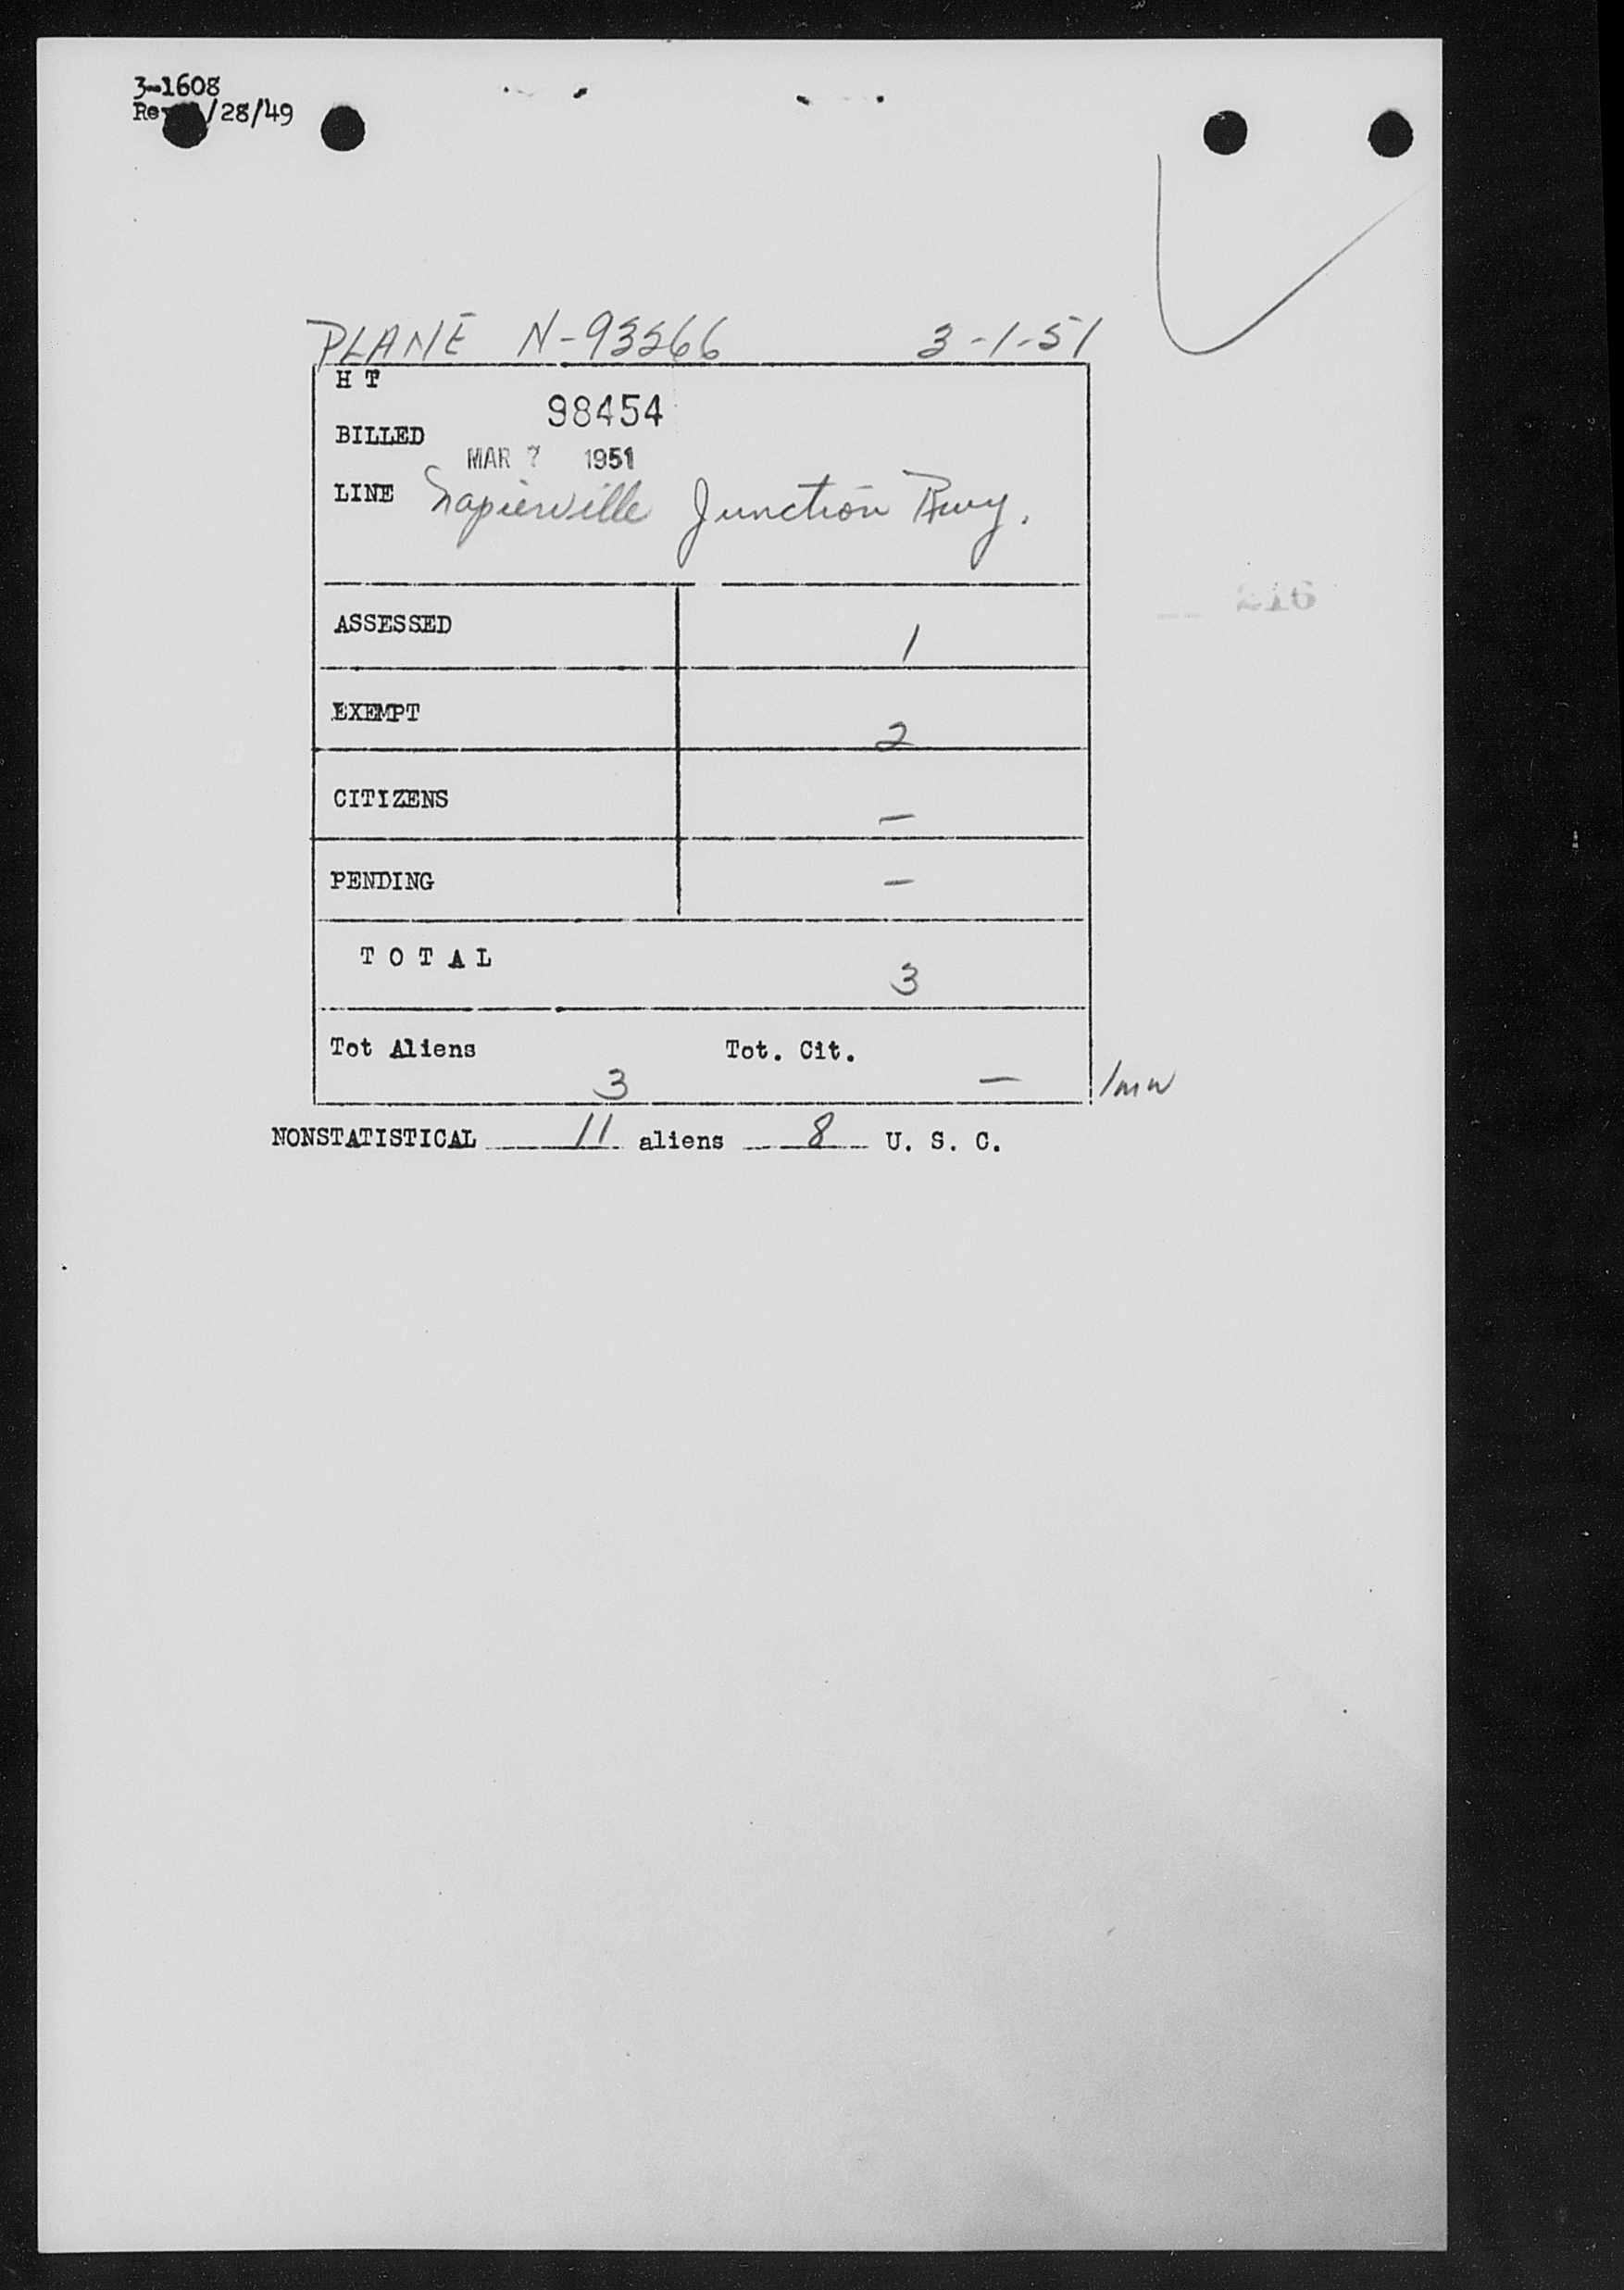 3-1608
/28/49
PLANE N-93266 3-1-51
H T
98454
BILLED
MAR 7 1951
LINE Napierville Junction Rwy.
ASSESSED 1
EXEMPT 2
CITIZENS —
PENDING —
T O T A L 3
Tot Aliens 3 Tot. Cit. —
NONSTATISTICAL 11 aliens 8 U. S. C.